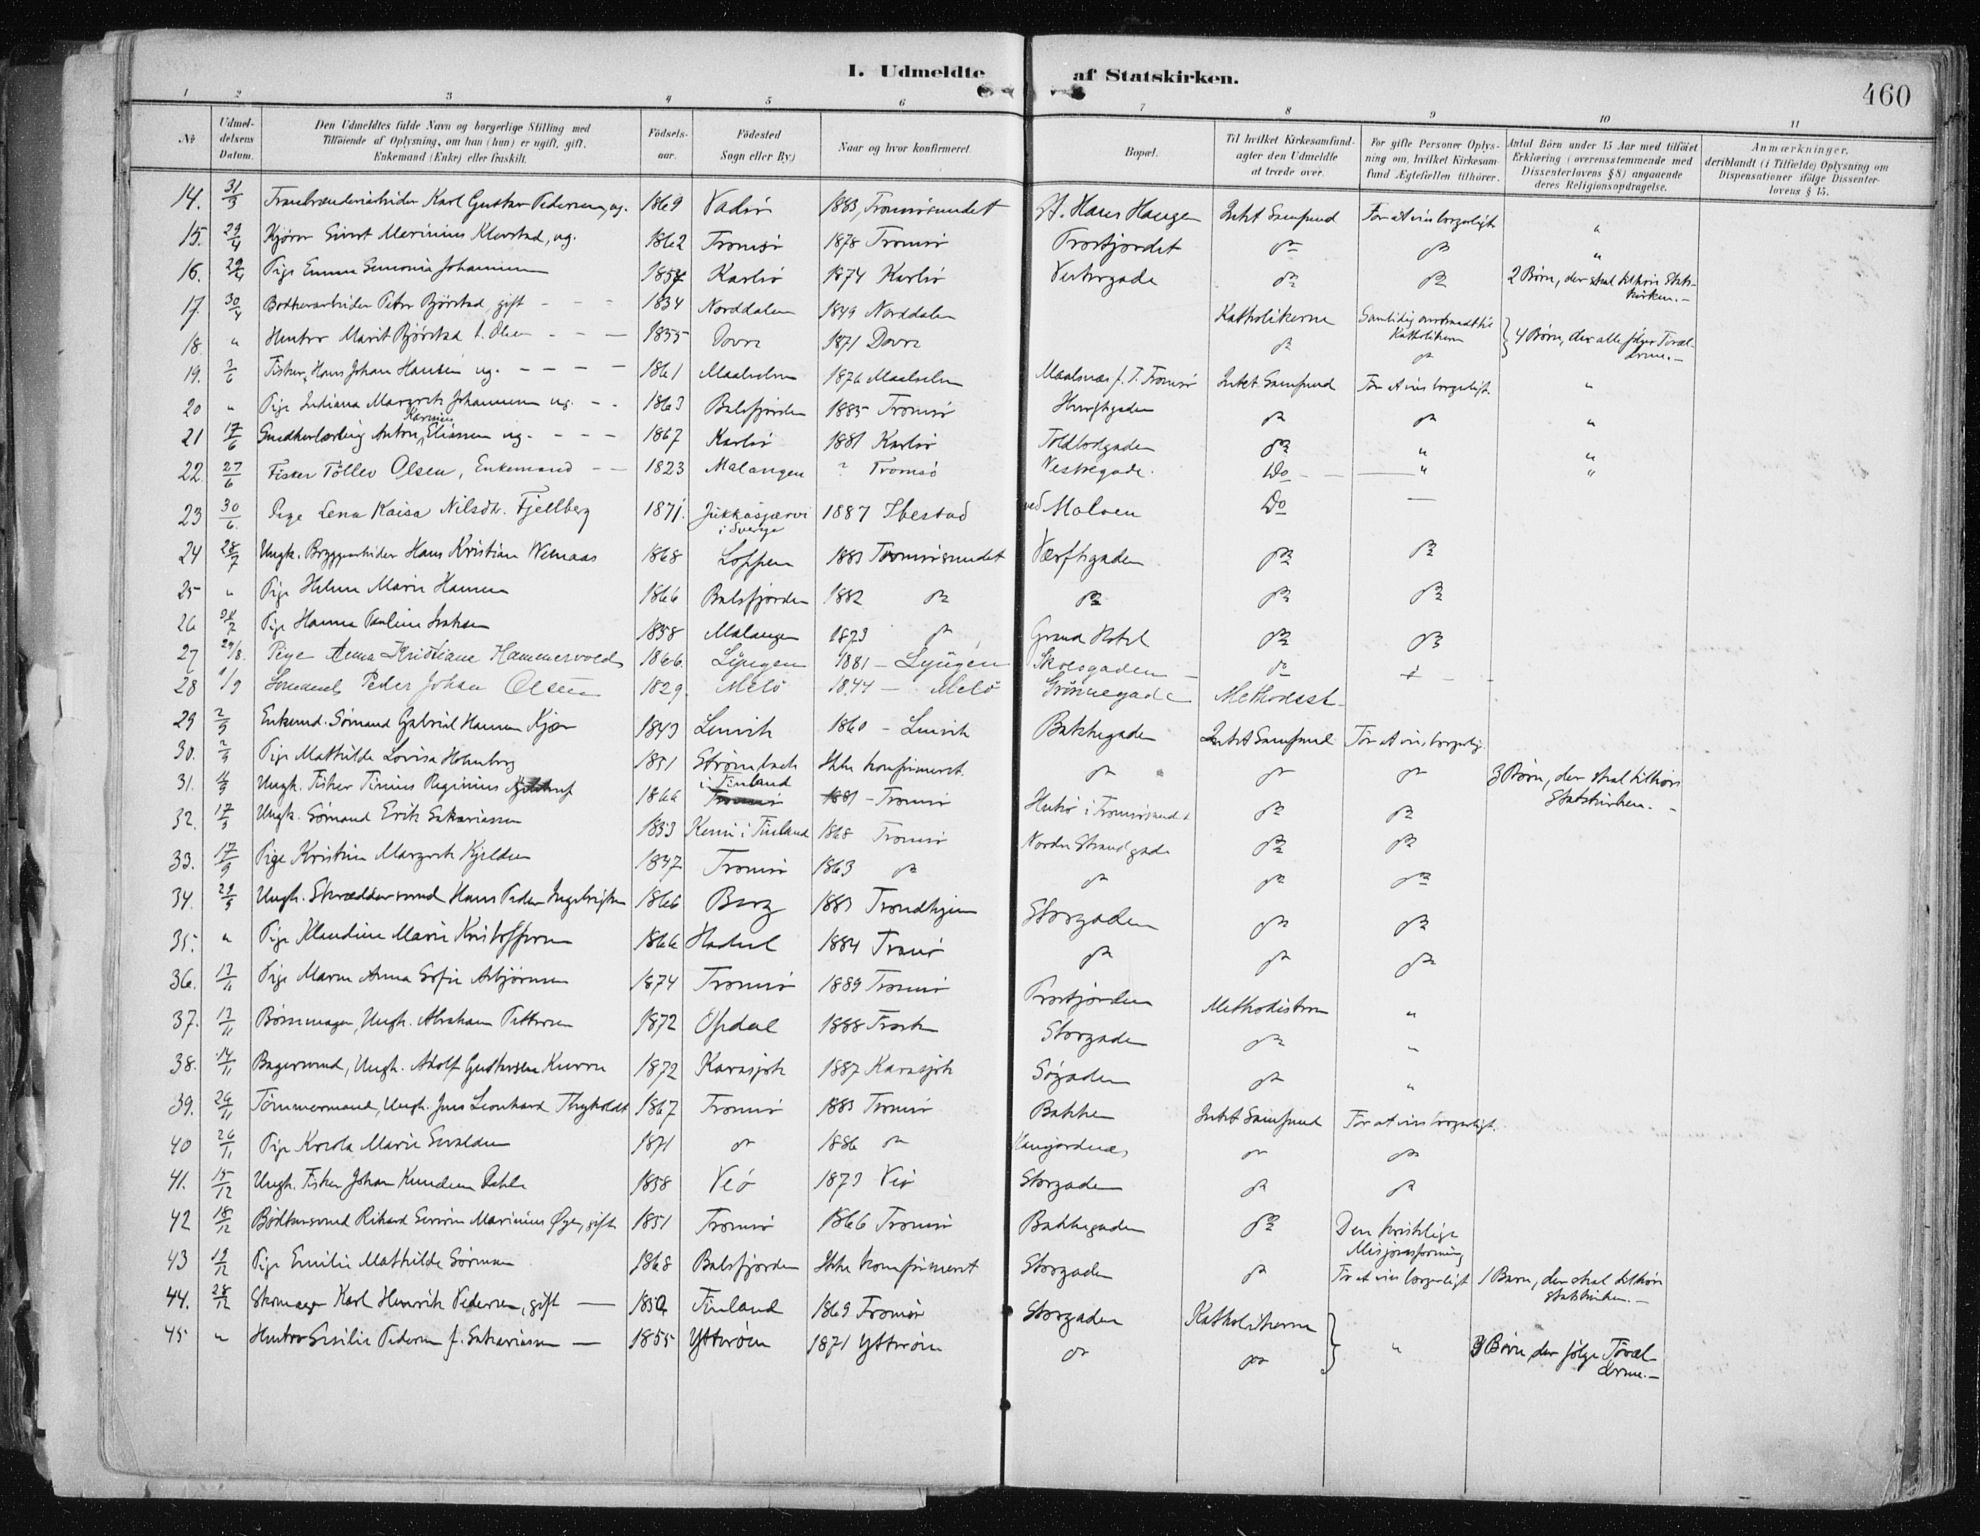 I. Udmeldte af Statskirken.
460
1 2 3 4 5 6 7 8 9 10 11
No
Udmel-
delsens
Datum.
Den Udmeldtes fulde Navn og borgerlige Stilling med
Tilföiende af Oplysning, om han (hun) er ugift, gift,
Enkemand (Enke) eller fraskilt.
Födsels-
aar.
Födested
Sogn eller By)
Naar og hvor konfirmeret.
Bopæl.
Til hvilket Kirkesamfund
agter den Udmeldte
at træde over.
For gifte Personer Oplys-
ning om, hvilket Kirkesam-
fund Ægtefællen tilhörer.
Antal Börn under 15 Aar med tilföiet
Erklæring (overensstemmende med
Dissenterlovens § 8) angaaende
deres Religionsopdragelse.
Anmærkninger,
deriblandt (i Tilfælde) Oplysning om
Dispensationer ifölge Dissenter-
lovens § 15.
14. 31/3 Karl Gustav Pedersen, ug. 1869 Vadsø 1883, Tromsøsundet St. Hans Haugen Intet Samfund For at vies borgerligt "
15. 29/4 Kjører Sivert Merinius Klevstad, ug. 1862 Tromsø 1878 Tromsø do do "
16. 29/4 Pige Emma Simonia Johannesen 1854 Karlsø 1874 Karlsø Vestregade do do 2 Børn, der skal tilhøre Stats-
kirken.-
17. 30/4 Bødkerarbeider Peter Bjørstad, gift - - - 1834 Norddalen 1849 Norddalen Katholikerne Samtidig overtraadt til
Katholikerne
18. " Hustru Marit Bjørstad f. Olsen - - - 1855 Dovre 1871 Dovre do do 4 Børn, der alle følger Foræl-
drene.-
19. 2/6 Fisker, Hans Johan Hansen ug. - - - - 1861 Maalselven 1876 Maalselven Maalsnæs p. T. Tromsø Intet Samfund For at vies borgerligt. "
20 " Pige Indiana Margrete Johannesen ug. - - 1863 Balsfjorden 1885 Tromsø do do "
21 17/6 Anton Elisasen ug. - - - 1867 Karlsø 1881 Karlsø Toldbodgaden do " "
22. 27/6 Fisker Töllev Olsen, Enkemand - - 1823 Malangen ? Tromsö Vestregade. Do - - " "
23 30/6. Pige Lena Kaisa Nilsdtr. Fjellberg 1871. Jukkasjærvi
i Sverige 1887 Ibestad ved Moloen Do —
24 28/7 Ungk. Bryggearbeider Hans Kristian Wennaas 1868 Loppen 1883 Tromsøsundet Værftsgaden do do
25 " Pige Helene Marie Hansen 1866 Balsfjorden 1882 do do do do
26 Pige Hanna Pauline Isaksen 1858 Malangen 1873 do Grand Hotel do do
27 29/8. Pige Anna Kristiane Hammervold 1866. Lyngen 1881 - Lyngen Skolegaden - do
28 1/9 Peder Johan Olsen 1829. Melö 1844 - Melö Grönnegade Methodist-
29 2/9 Enkemd. Sømand Gabriel Hansen Kjær 1843 Lenvik 1860 - Lenvik Bakkegaden Intet Samfund For at vies borgerlig.
30. 2/9 Pige Mathilde Lovisa Holmberg 1851 Strömbæck
i Finland Ikke konfirmeret. do do do 3 Børn, der skal tilhøre
Statskirken. -
31. Ungk. Fisker Tinius Reginius 1866 Tromsø 1881 - Tromsø i Tromsøsundet do do
32. 17/9 Ungk. Sømand Erik Sakariassen 1853 Kemi i Finland 1868 Tromsø Nordre Strandgade do do
33. 17/9 Pige Kristine Margrete Kjeldsen 1847 Tromsø 1863 do do do do
34. 29/9 Ungk. Skræddersvend Hans Peder Ingebrigtsen 1866 Berg 1883 Trondhjem Storgaden do do
35. " Pige Klaudine Marie Kristoffersen 1866 Hadsel 1884 Tranø do do do
36. 13/11 Pige Maren Anna Sofie Asbjørnsen 1874 Tromsø 1889 Tromsø Methodisterne "
37. 13/11 Ungk. Abraham Pettersen 1872 Opdal 1888 Storgaden do "
38. 14/11 Bagersvend, Ungk. Adolf 1872 Karasjok 1887 Karasjok Søgaden do "
39. 26/11 Tømmermand, Ungk. Jens Leonhard Thyholdt 1867 Tromsø 1883 Tromsø Bakken Intet Samfund For at vies borgerligt.
40 26/11 Pige Marie Sivaldsen 1871 do 1886 do do do
41. 15/12 Ungk. Fisker Johan Knudsen Dahle 1858 Veø 1873 Veø Storgaden do do
42 18/12 Bødkersvend Rikard Marinius Øyen, gift 1851 Tromsø 1866 Tromsø Bakkegaden do Den kristelige
Misjonsforening
43 19/12 Pige Emilie Mathilde Sørensen 1868 Balsfjorden Ikke konfirmeret Storgaden do For at vies borgerligt 1 Barn, der skal tilhøre
Statskirken.-
44. 28/12 Skomager Karl Henrik Pedersen, gift — 1850 Finland 1869 Tromsø Storgaden Katholikerne
45 " Hustru Sisilie Pedersen f. Sakariassen — 1855 Ytterøen 1871 Ytterøen do do " 3 Børn der følge Foræl-
drene.-